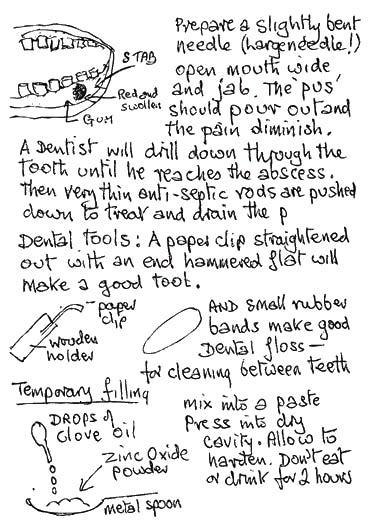 Prepare a slightly bent
needle (large needle!)
open mouth wide
and jab. The 'pus'
should pour out and
the pain diminish.
STAB
Red and
swollen
GUM
A Dentist will drill down through the
tooth until he reaches the abscess.
Then very thin anti-septic rods are pushed
down to treat and drain the p
Dental tools: A paper clip straightened
out with an end hammered flat will
make a good toot.
paper
clip
wooden
holder
AND small rubber
bands make good
Dental floss —
for cleaning between teeth
Temporary filling
DROPS of
clove oil
zinc oxide
powder
metal spoon
mix into a paste
Press into dry
cavity. Allow to
harden. Don't eat
or drink for 2 hours